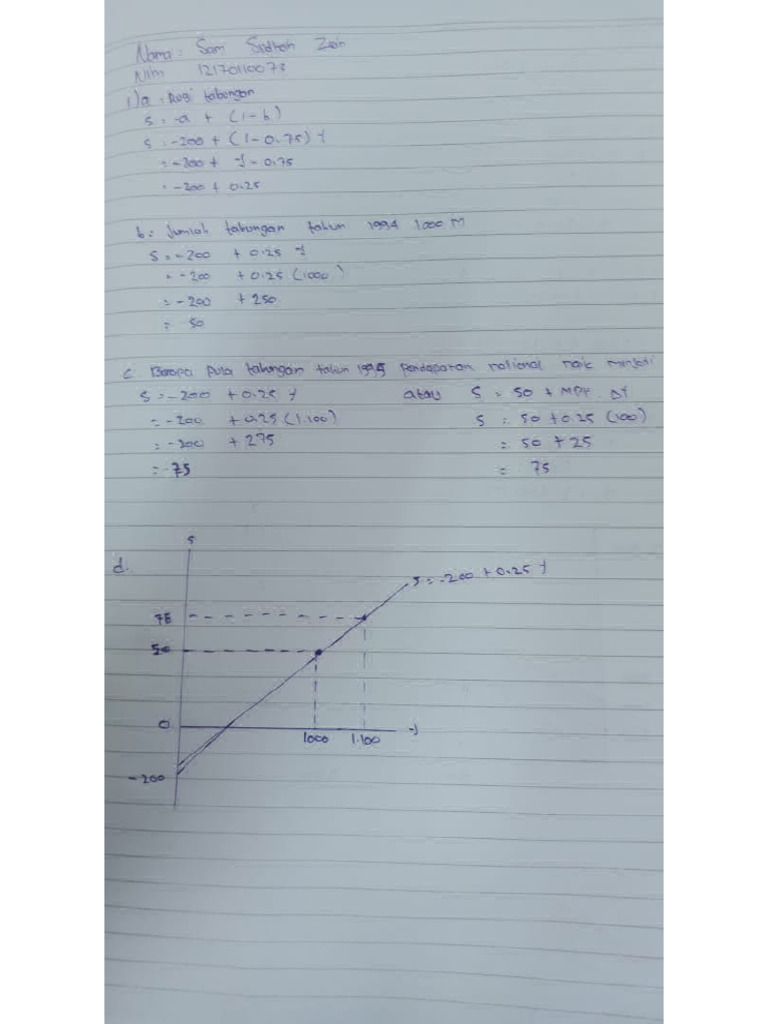 Nama : Sam Zein
Nim 12170110073
1) a. Fungi tabungan
S = -a + (1-b)
S = -200 + (1-0.75) Y
= -200 + Y - 0.75
= -200 + 0.25
b. Jumlah tabungan tahun 1994 1000 M
S = -200 + 0.25 Y
= -200 + 0.25 (1000)
= -200 + 250
= 50
c. Berapa pula tabungan tahun 1995 Pendapatan nasional naik menjadi
S = -200 + 0.25 Y atau S = 50 + MPF. ΔY
= -200 + 0.25 (1.100) S = 50 + 0.25 (100)
= -200 + 275 = 50 + 25
= 75 = 75
d.
S
S = -200 + 0.25 Y
75
50
0
1000 1.100 Y
-200